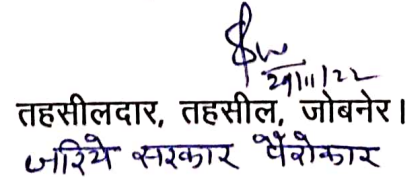 29/11/22
तहसीलदार, तहसील, जोबनेर।
जरिये सरकार पैरोकार